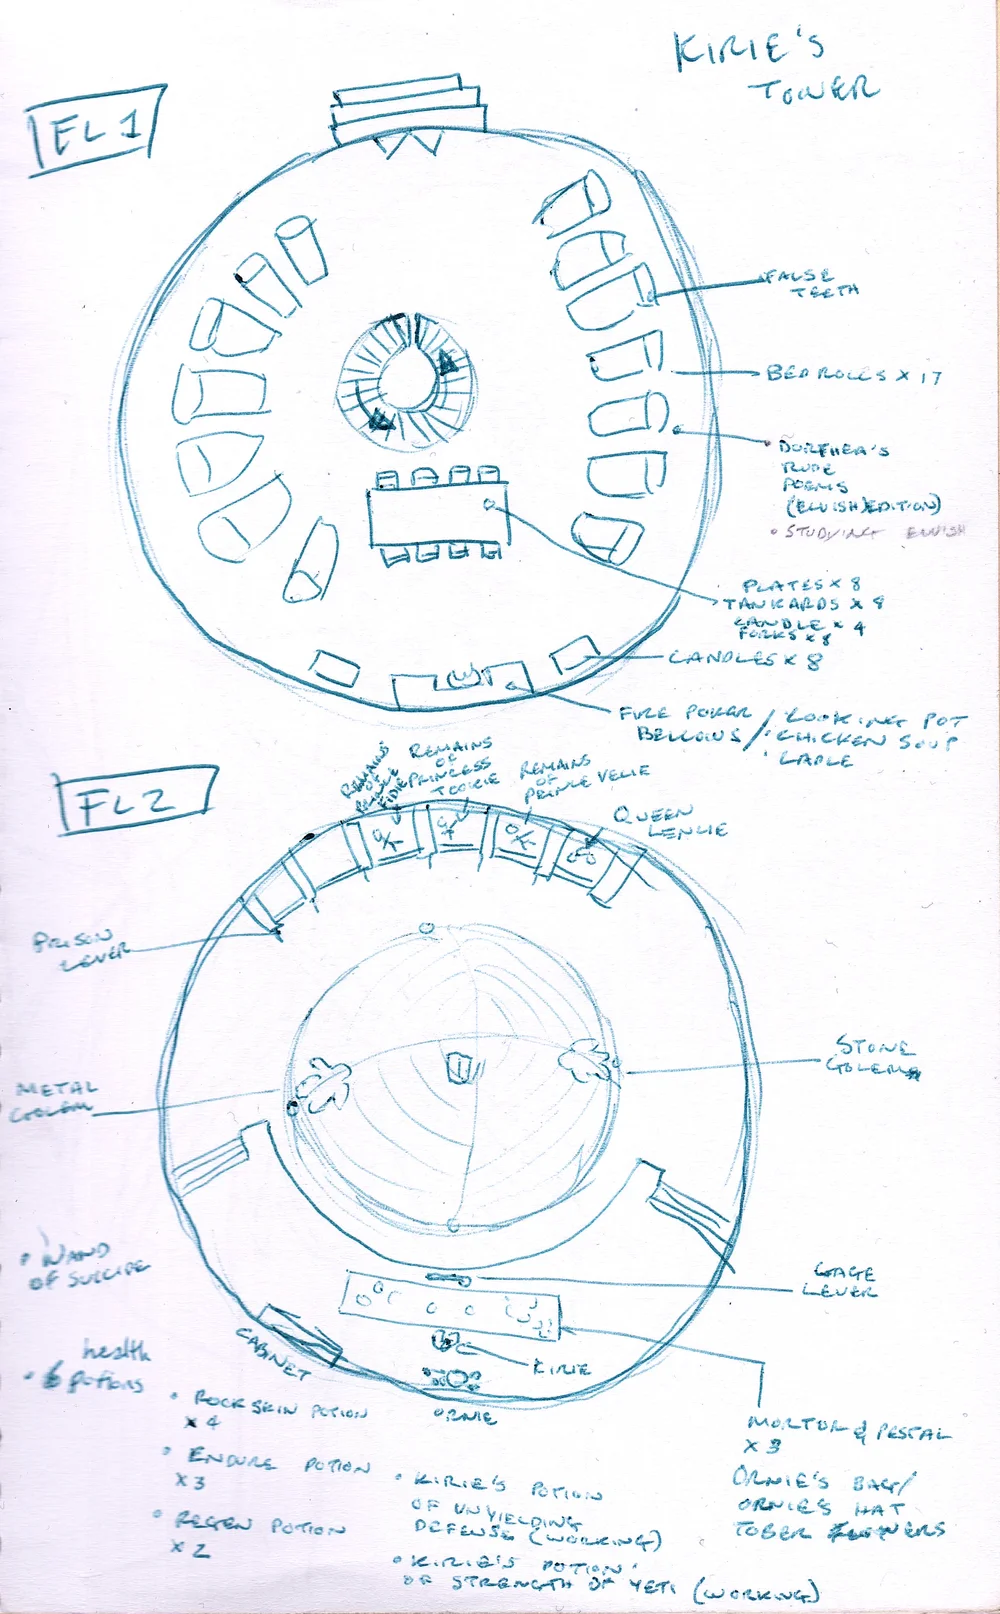 KIRIE'S
TOWER
FL 1
FALSE
TEETH
BEDROLLS X 17
• DORTHEA'S
RUDE
POEMS
(ELVISH EDITION)
• STUDYING ELVISH
PLATES X 8
TANKARDS X 8
CANDLE X 4
FORKS X 8
CANDLES X 8
FIRE POKER / COOKING POT
BELLOWS / CHICKEN SOUP
LADLE
FL 2
REMAINS
OF
REMAINS
OF
PRINCESS
TOOKIE
REMAINS
OF
PRINCE VELIE
QUEEN
LENLIE
PRISON
LEVER
METAL
GOLEM
STONE
GOLEM
• WAND
OF SUICIDE
CAGE
LEVER
CABNET
KIRIE
ORNIE
health
• 6 potions
• ROCKSKIN POTION
X 4
• ENDURE POTION
X 3
• REGEN POTION
X 2
• KIRIE'S POTION
OF UNYIELDING
DEFENSE (WORKING)
• KIRIE'S POTION
OF STRENGTH OF YETI (WORKING)
MORTUR & PESTAL
X 3
ORNIE'S BAG/
ORNIE'S HAT
TOBER FLOWERS